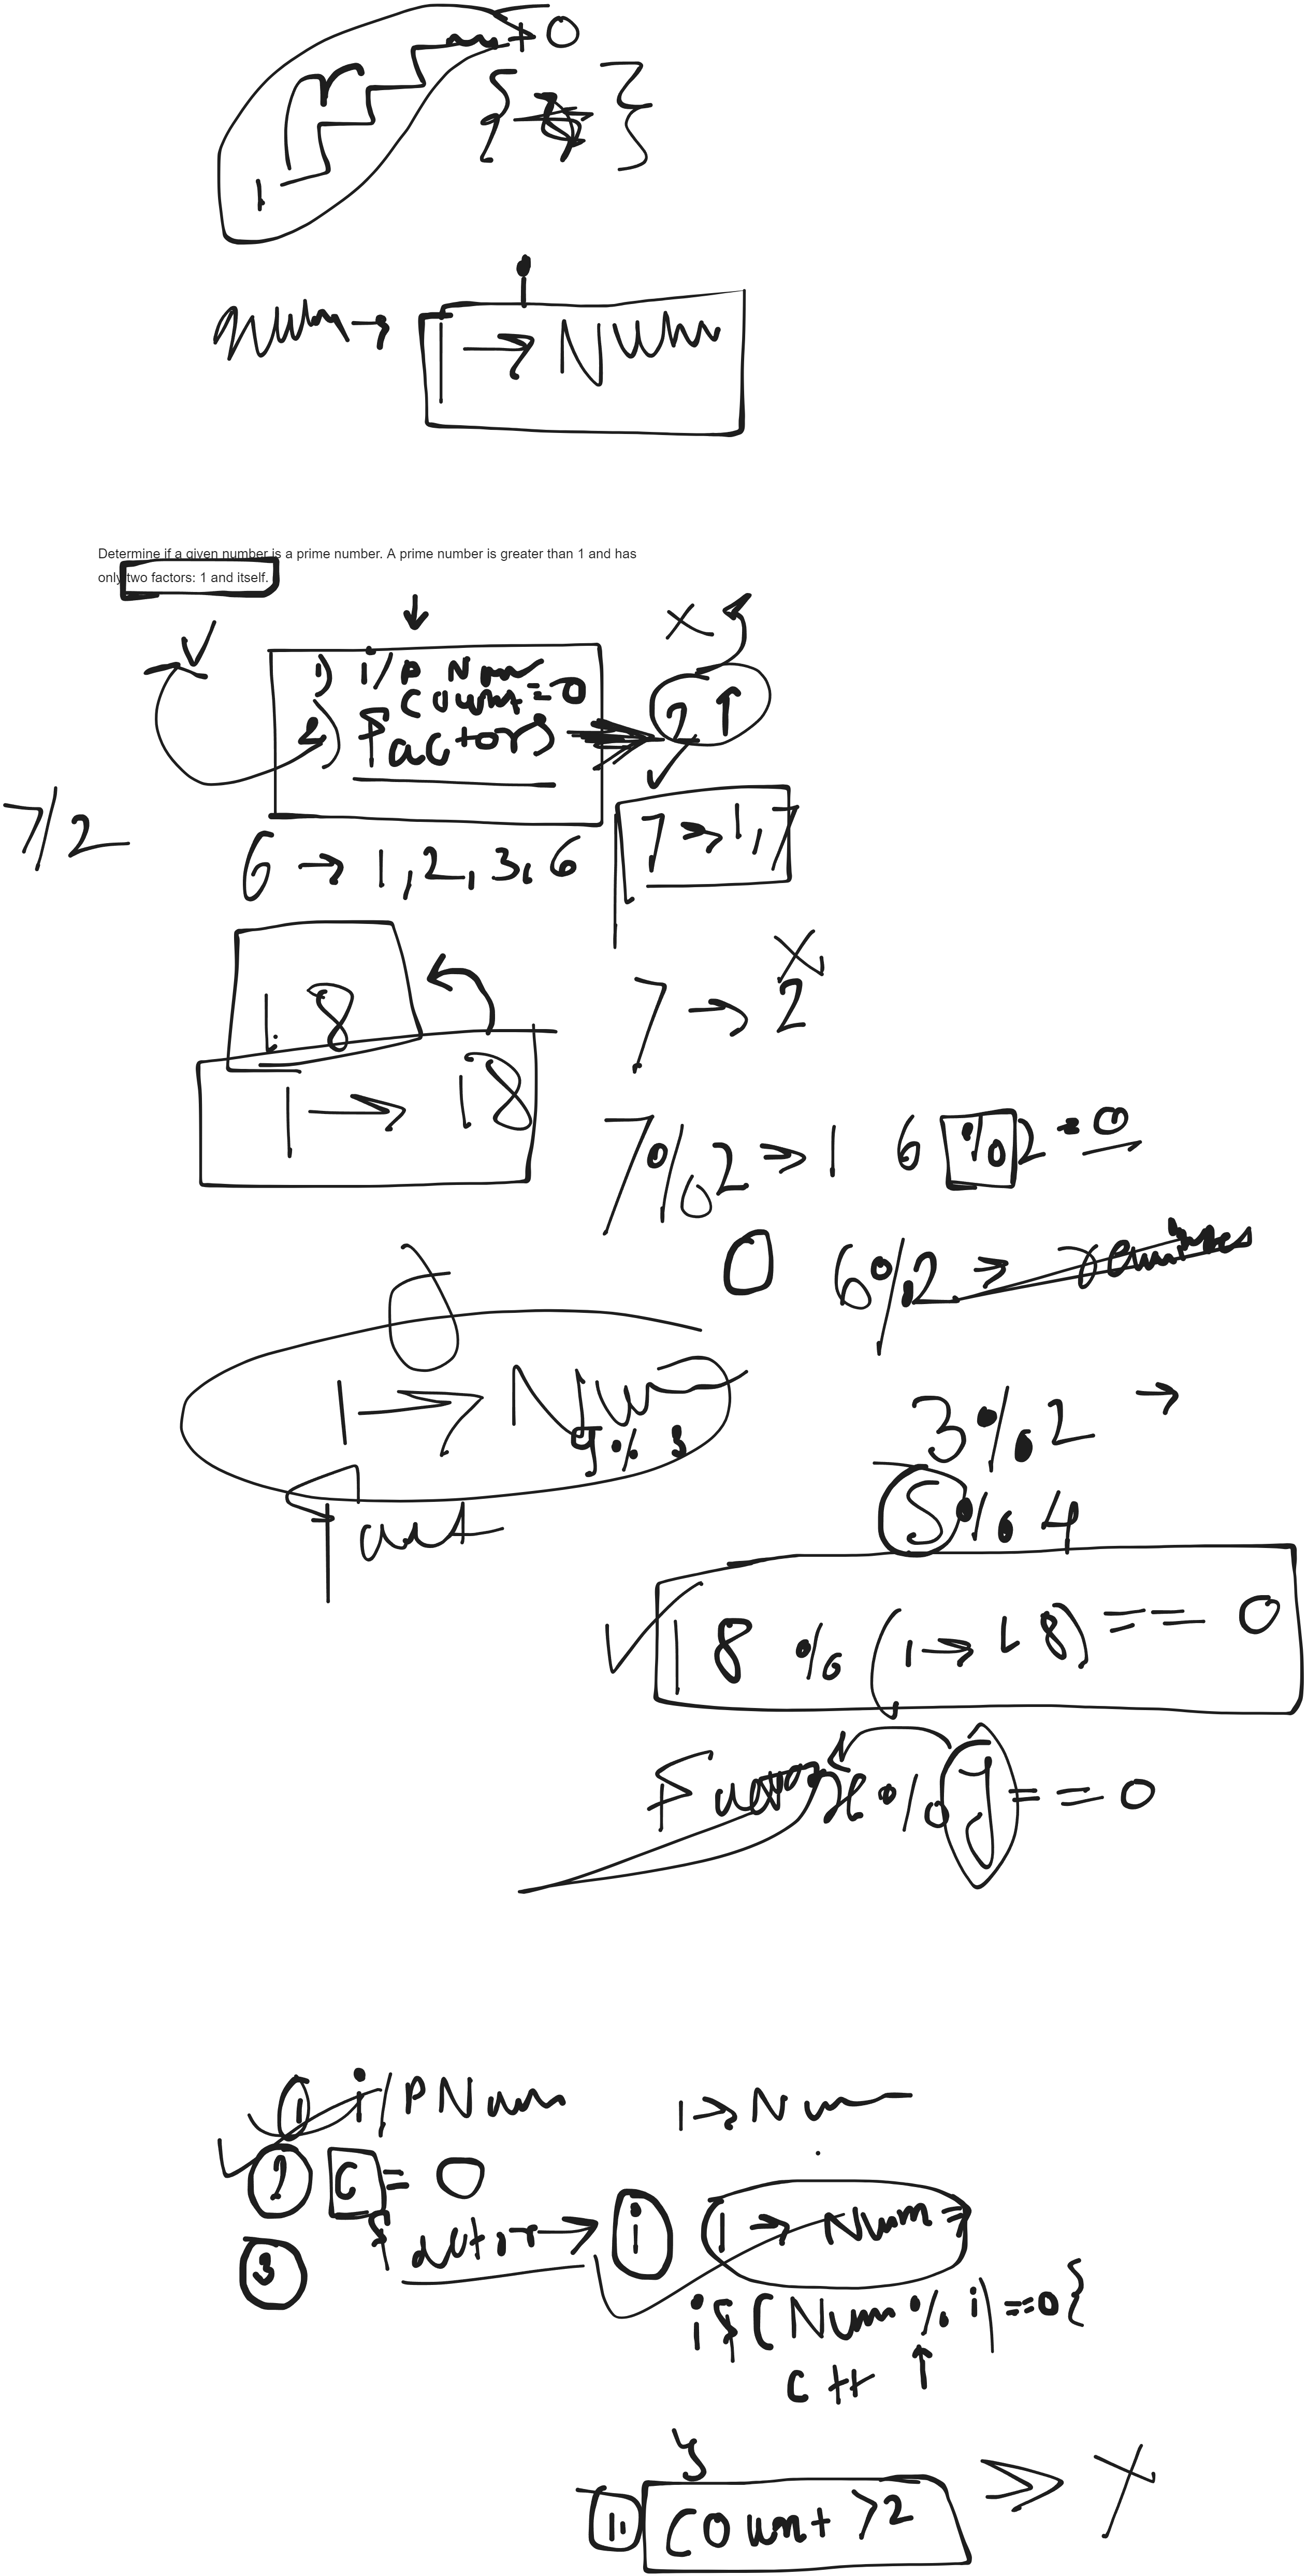 + 0
r
{ }
1
i
num → 1 → Num
Determine if a given number is a prime number. A prime number is greater than 1 and has
only two factors: 1 and itself.
1) i/p Num
count = 0
2) factors
2 ↑
7/2
6 → 1, 2, 3, 6
7 → 1, 7
18
7 → 2
1 → 18
7 % 2 ⇒ 1
6 % 2 = 0
0
6 % 2 ⇒
1 → Num
9 % 3
3 % 2 →
5 % 4
fact
18 % (1 → 18) == 0
Factor x % y == 0
1 i/P Num
1 → Num
2 C = 0
3 factor → i (1 → Num ⇒
if (Num % i) == 0 {
c ++ ↑
}
count > 2